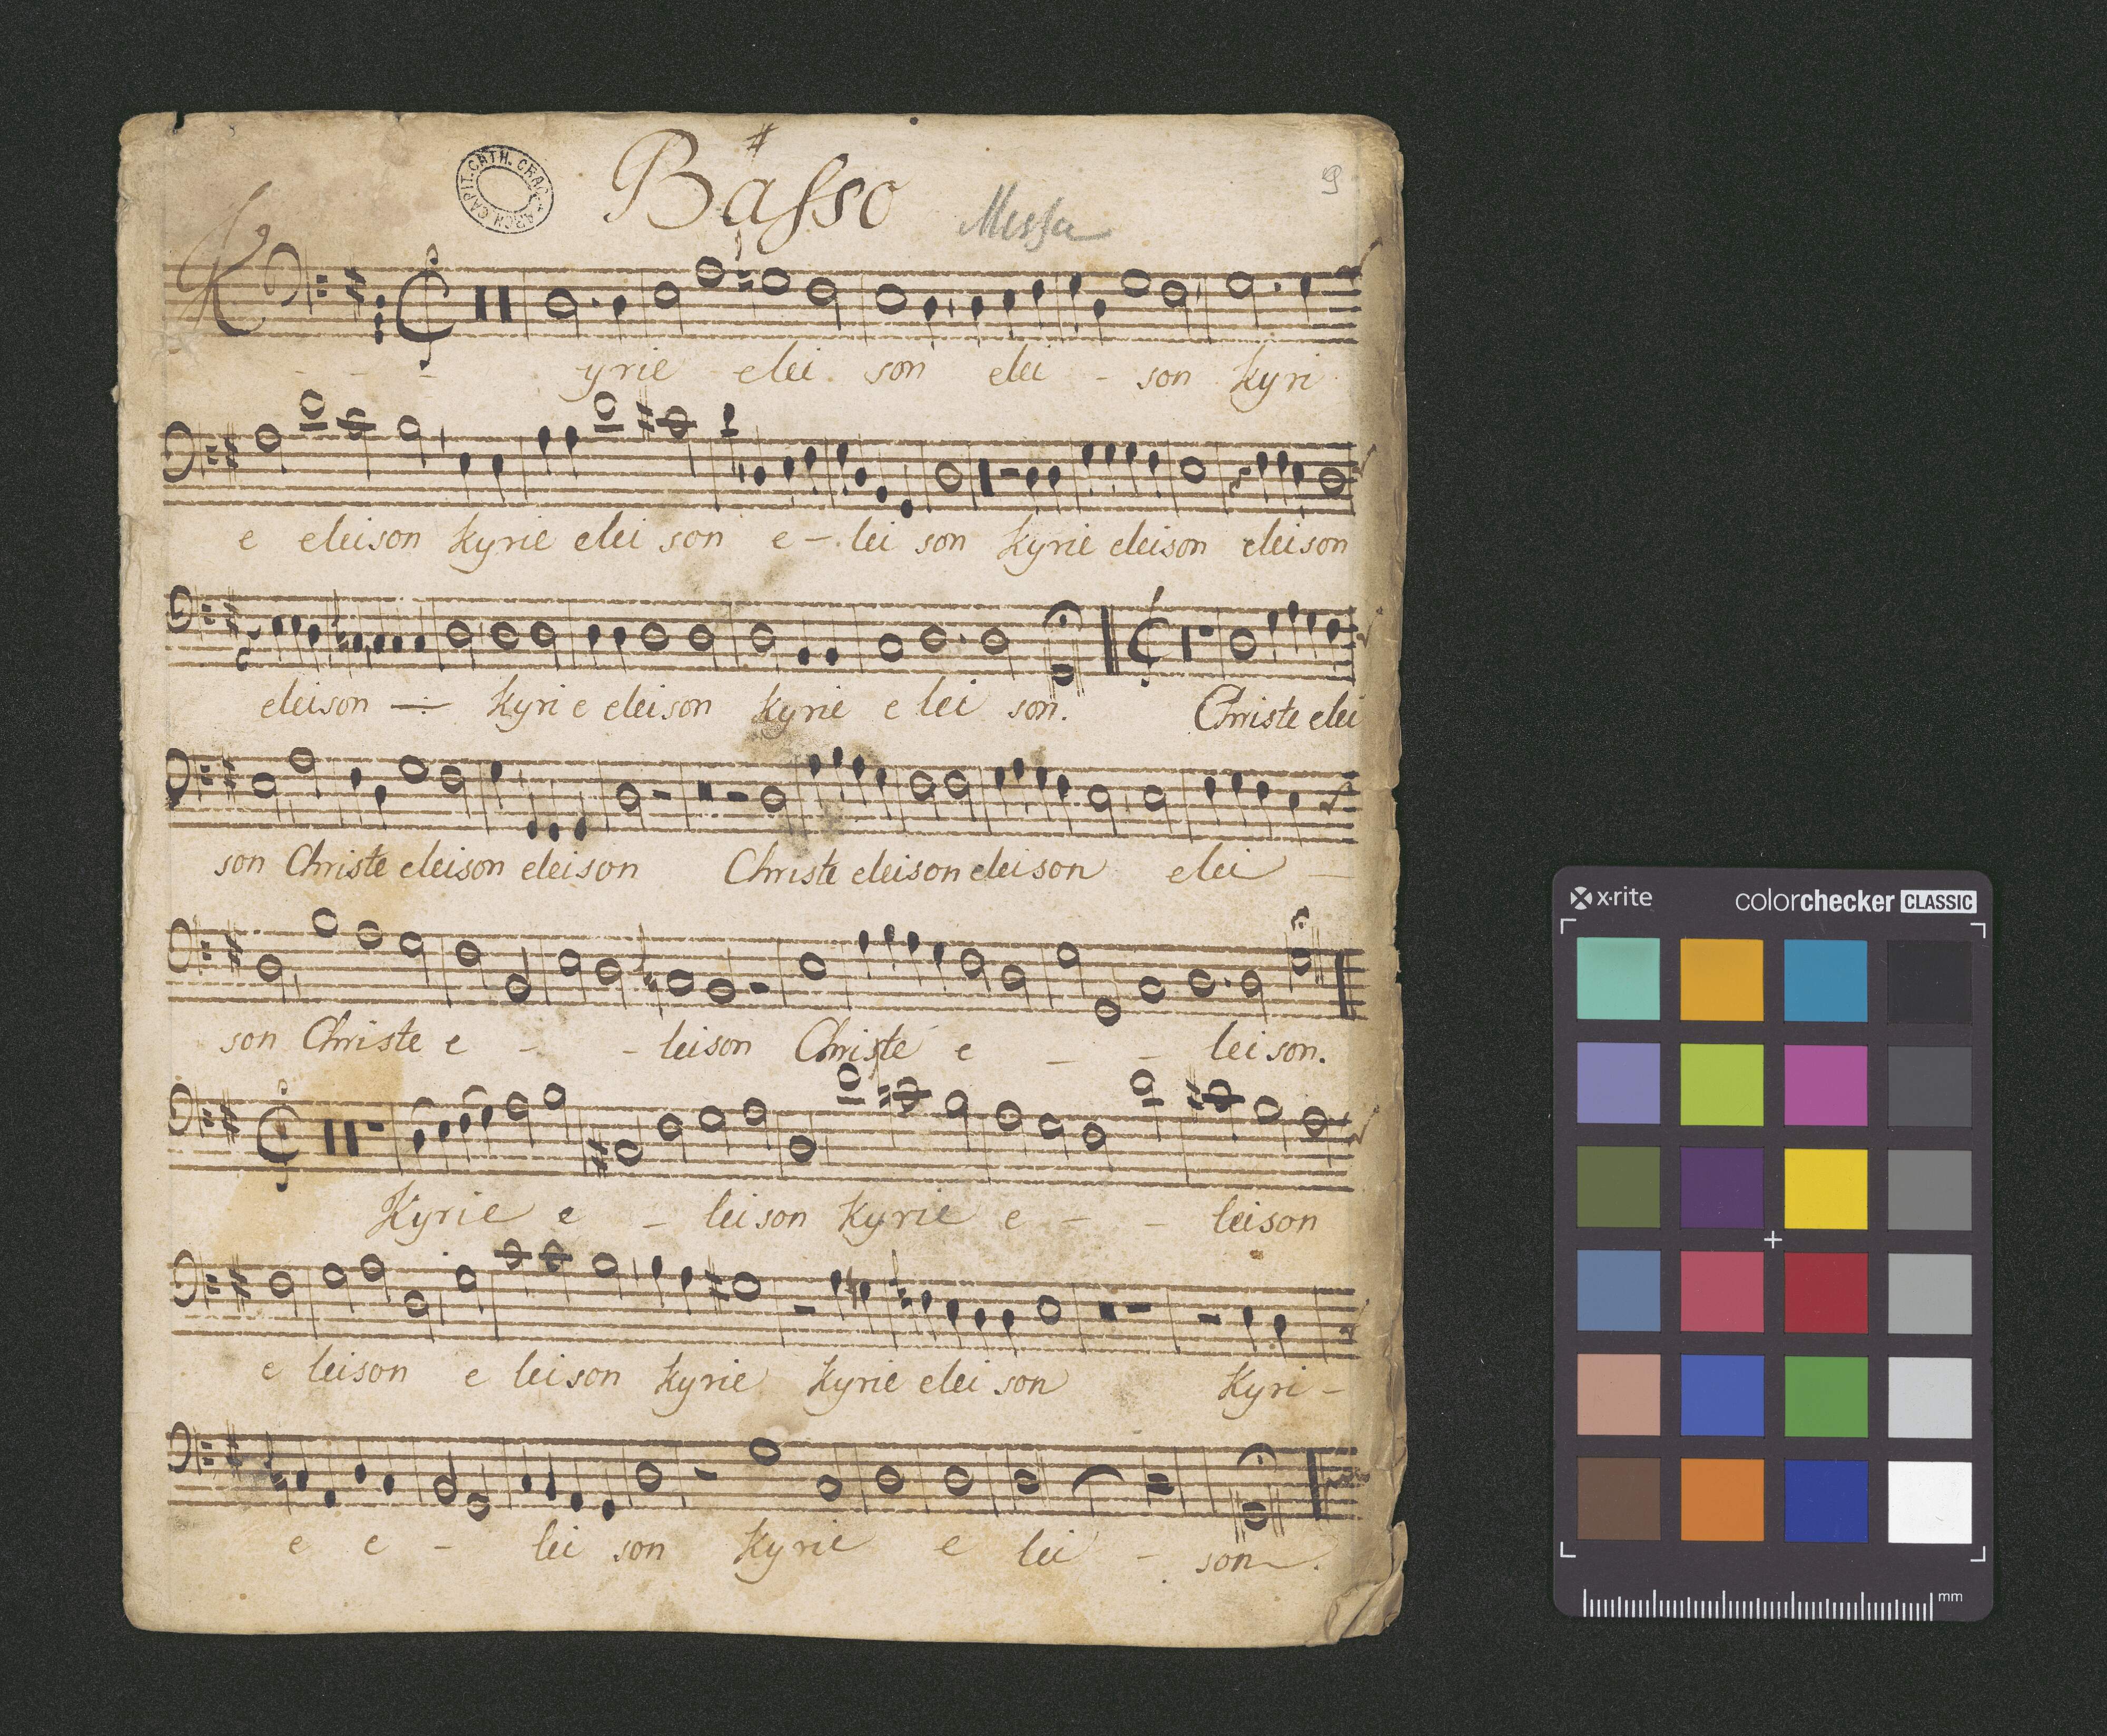 ARCH. CAPIT. CATH. CRAC.
Basso
Missa
9
Kyrie elei son elei - son kyri
e eleison kyrie elei son e - lei son kyrie eleison eleison
eleison kyri e eleison kyrie e lei son. Christe elei
son Christe eleison eleison Christe eleison eleison elei -
son Christe e - - leison Christe e - - lei son.
Kyrie e - leison kyrie e - - leison
e leison e leison kyrie kyrie elei son Kyri -
e e - lei son kyrie e lei - son.
x·rite
colorchecker CLASSIC
mm